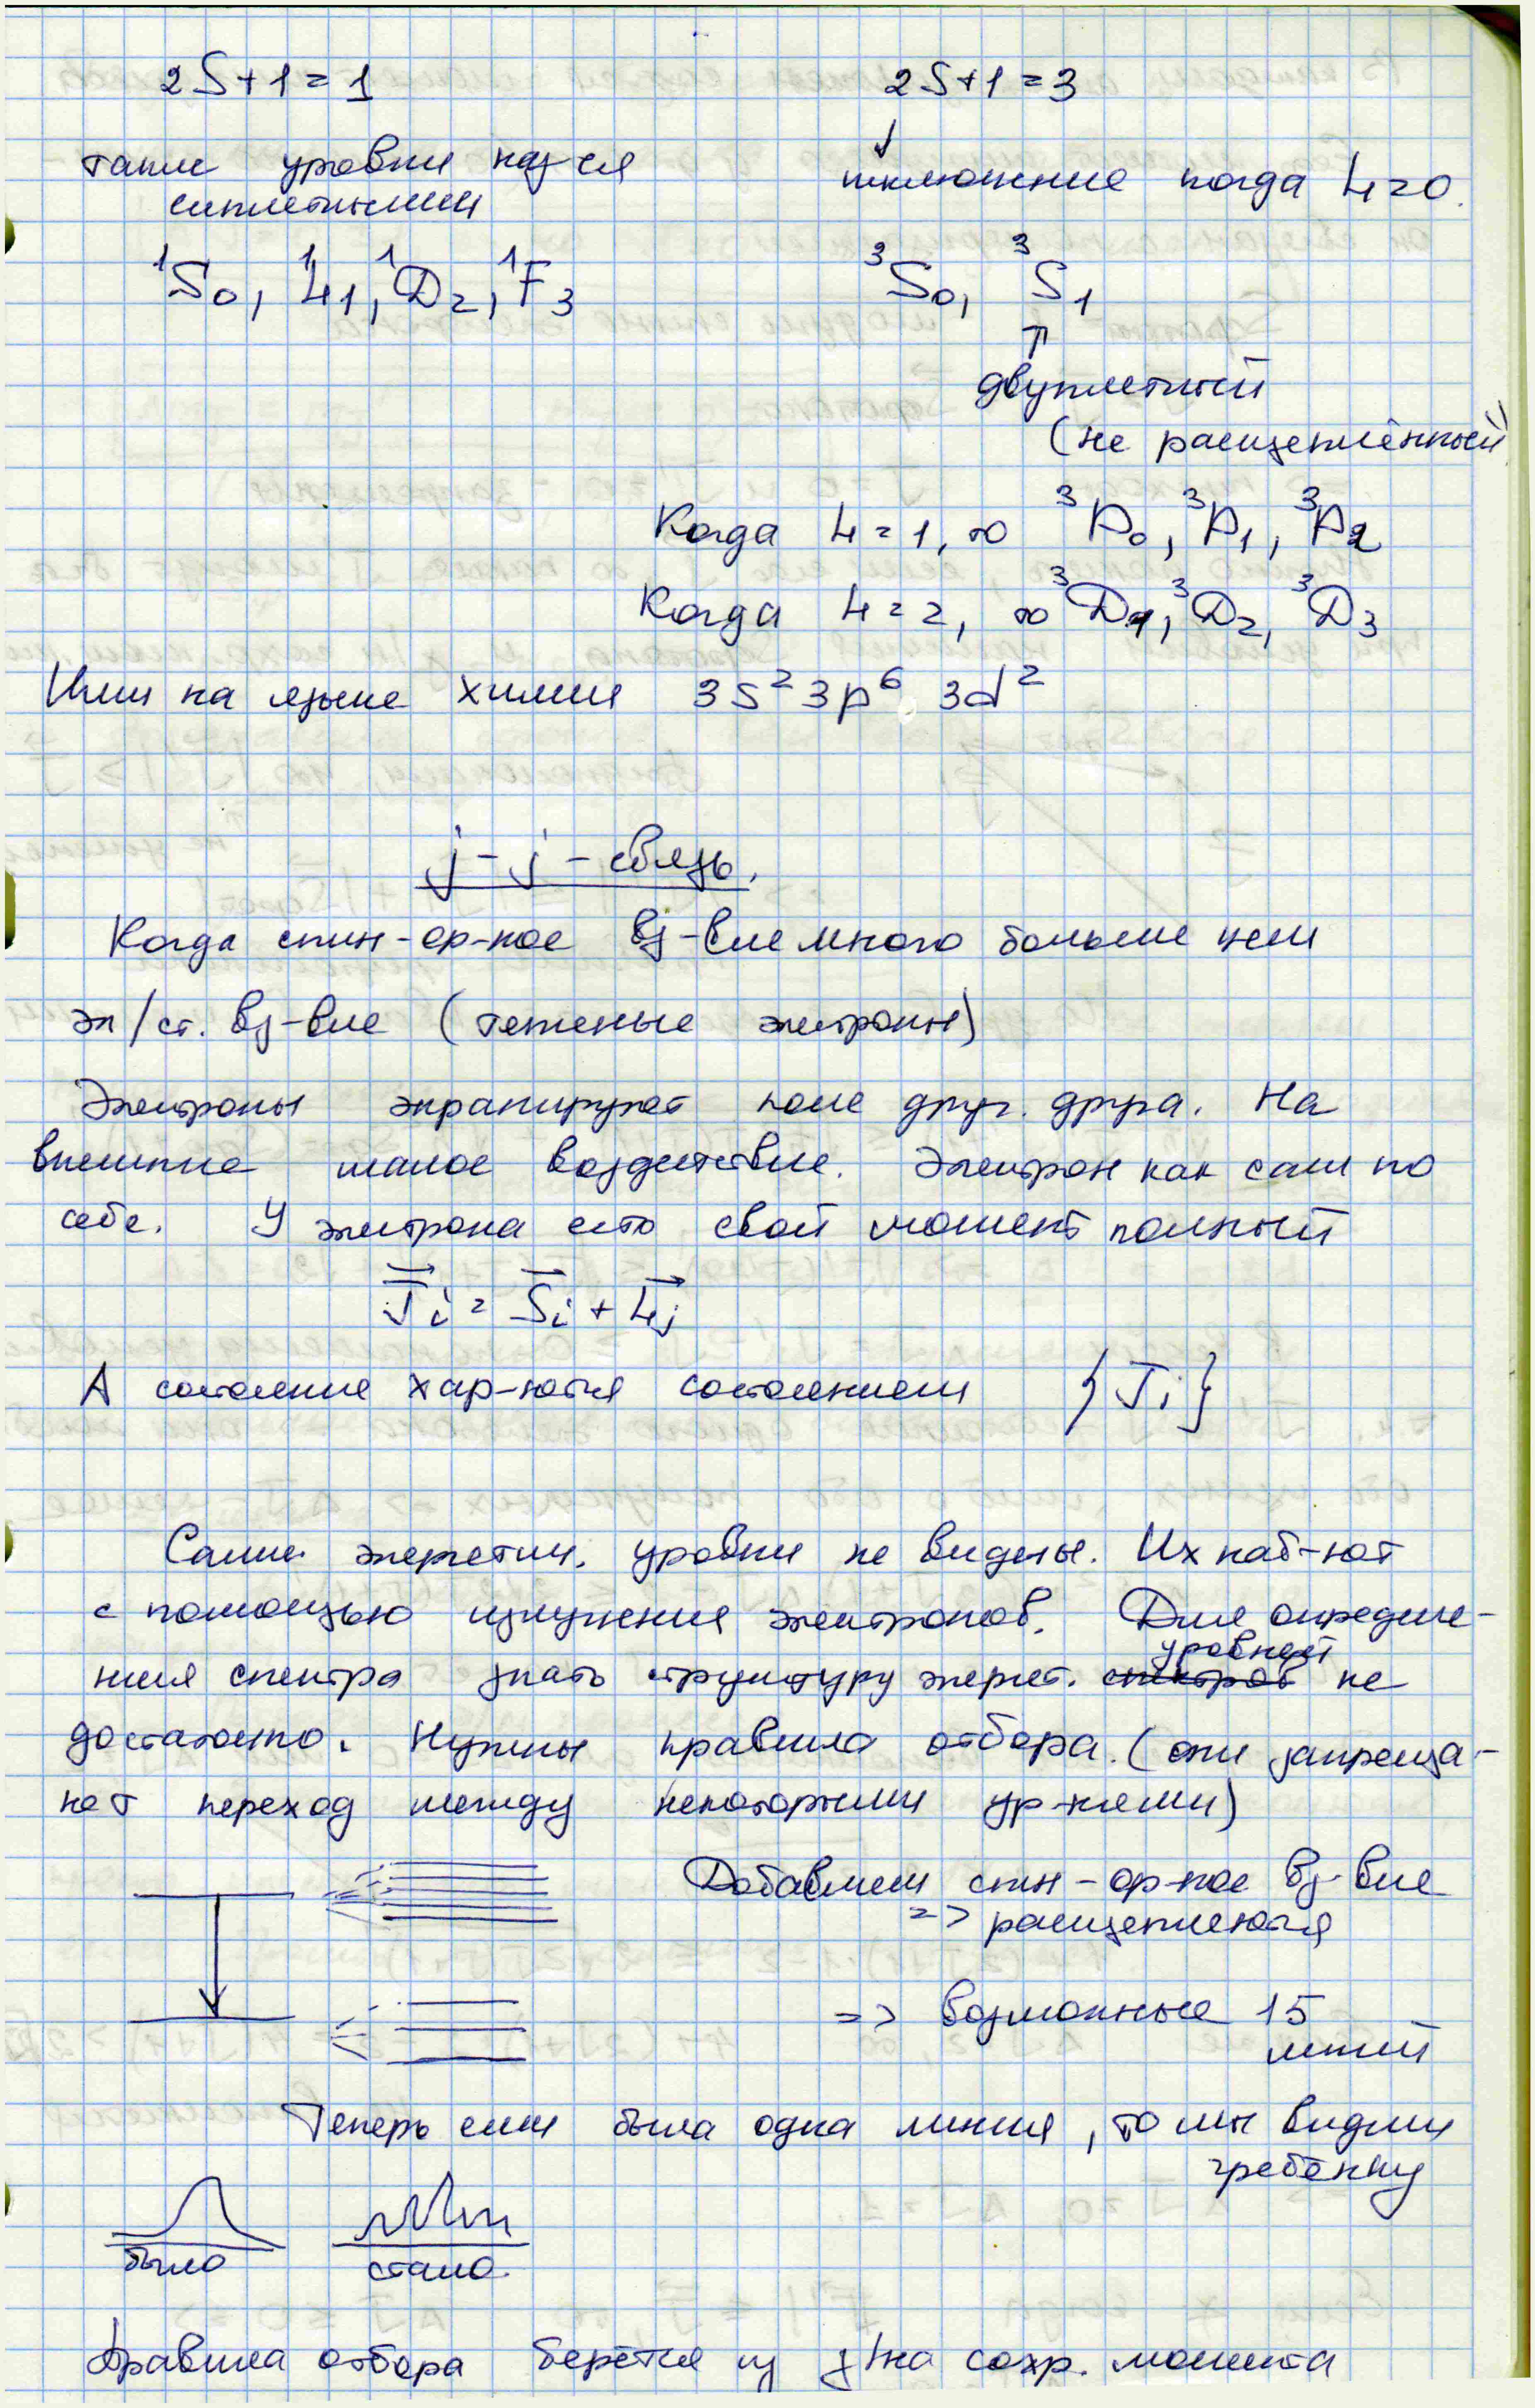 2S+1=1
2S+1=3
такие уровни наз-ся
синглетными
исключение когда L=0.
¹S₀, ¹L₁, ¹D₂, ¹F₃
³S₀, ³S₁
↑
двуплетный
(не расщеплённый)
Когда L=1, то ³P₀, ³P₁, ³P₂
Когда L=2, то ³D₁, ³D₂, ³D₃
Или на языке химии 3s² 3p⁶ 3d²
j-j-связь.
Когда спин-ор-ное вз-вие много больше чем
эл/ст. вз-вие (тяжелые электроны)
Электроны экранируют поле друг. друга. На
внешние малое воздействие. Электрон как сам по
себе. У электрона есть свой момент полный
J⃗i = S⃗i + L⃗j
А состояние хар-ются состоянием {Ji}
Сами энергетич. уровни не видны. Их наб-ют
с помощью излучения электронов. Для определе-
уровней
ния спектра знать структуру энергет. спектров не
достаточно. Нужны правила отбора. (они запреща-
ют переход между некоторыми ур-нями)
Добавляем спин-ор-ное вз-вие
=> расщепляются
=> возможные 15
линий
Теперь если была одна линия, то мы видим
гребёнку
было
стало.
Правила отбора берётся из з/на сохр. момента